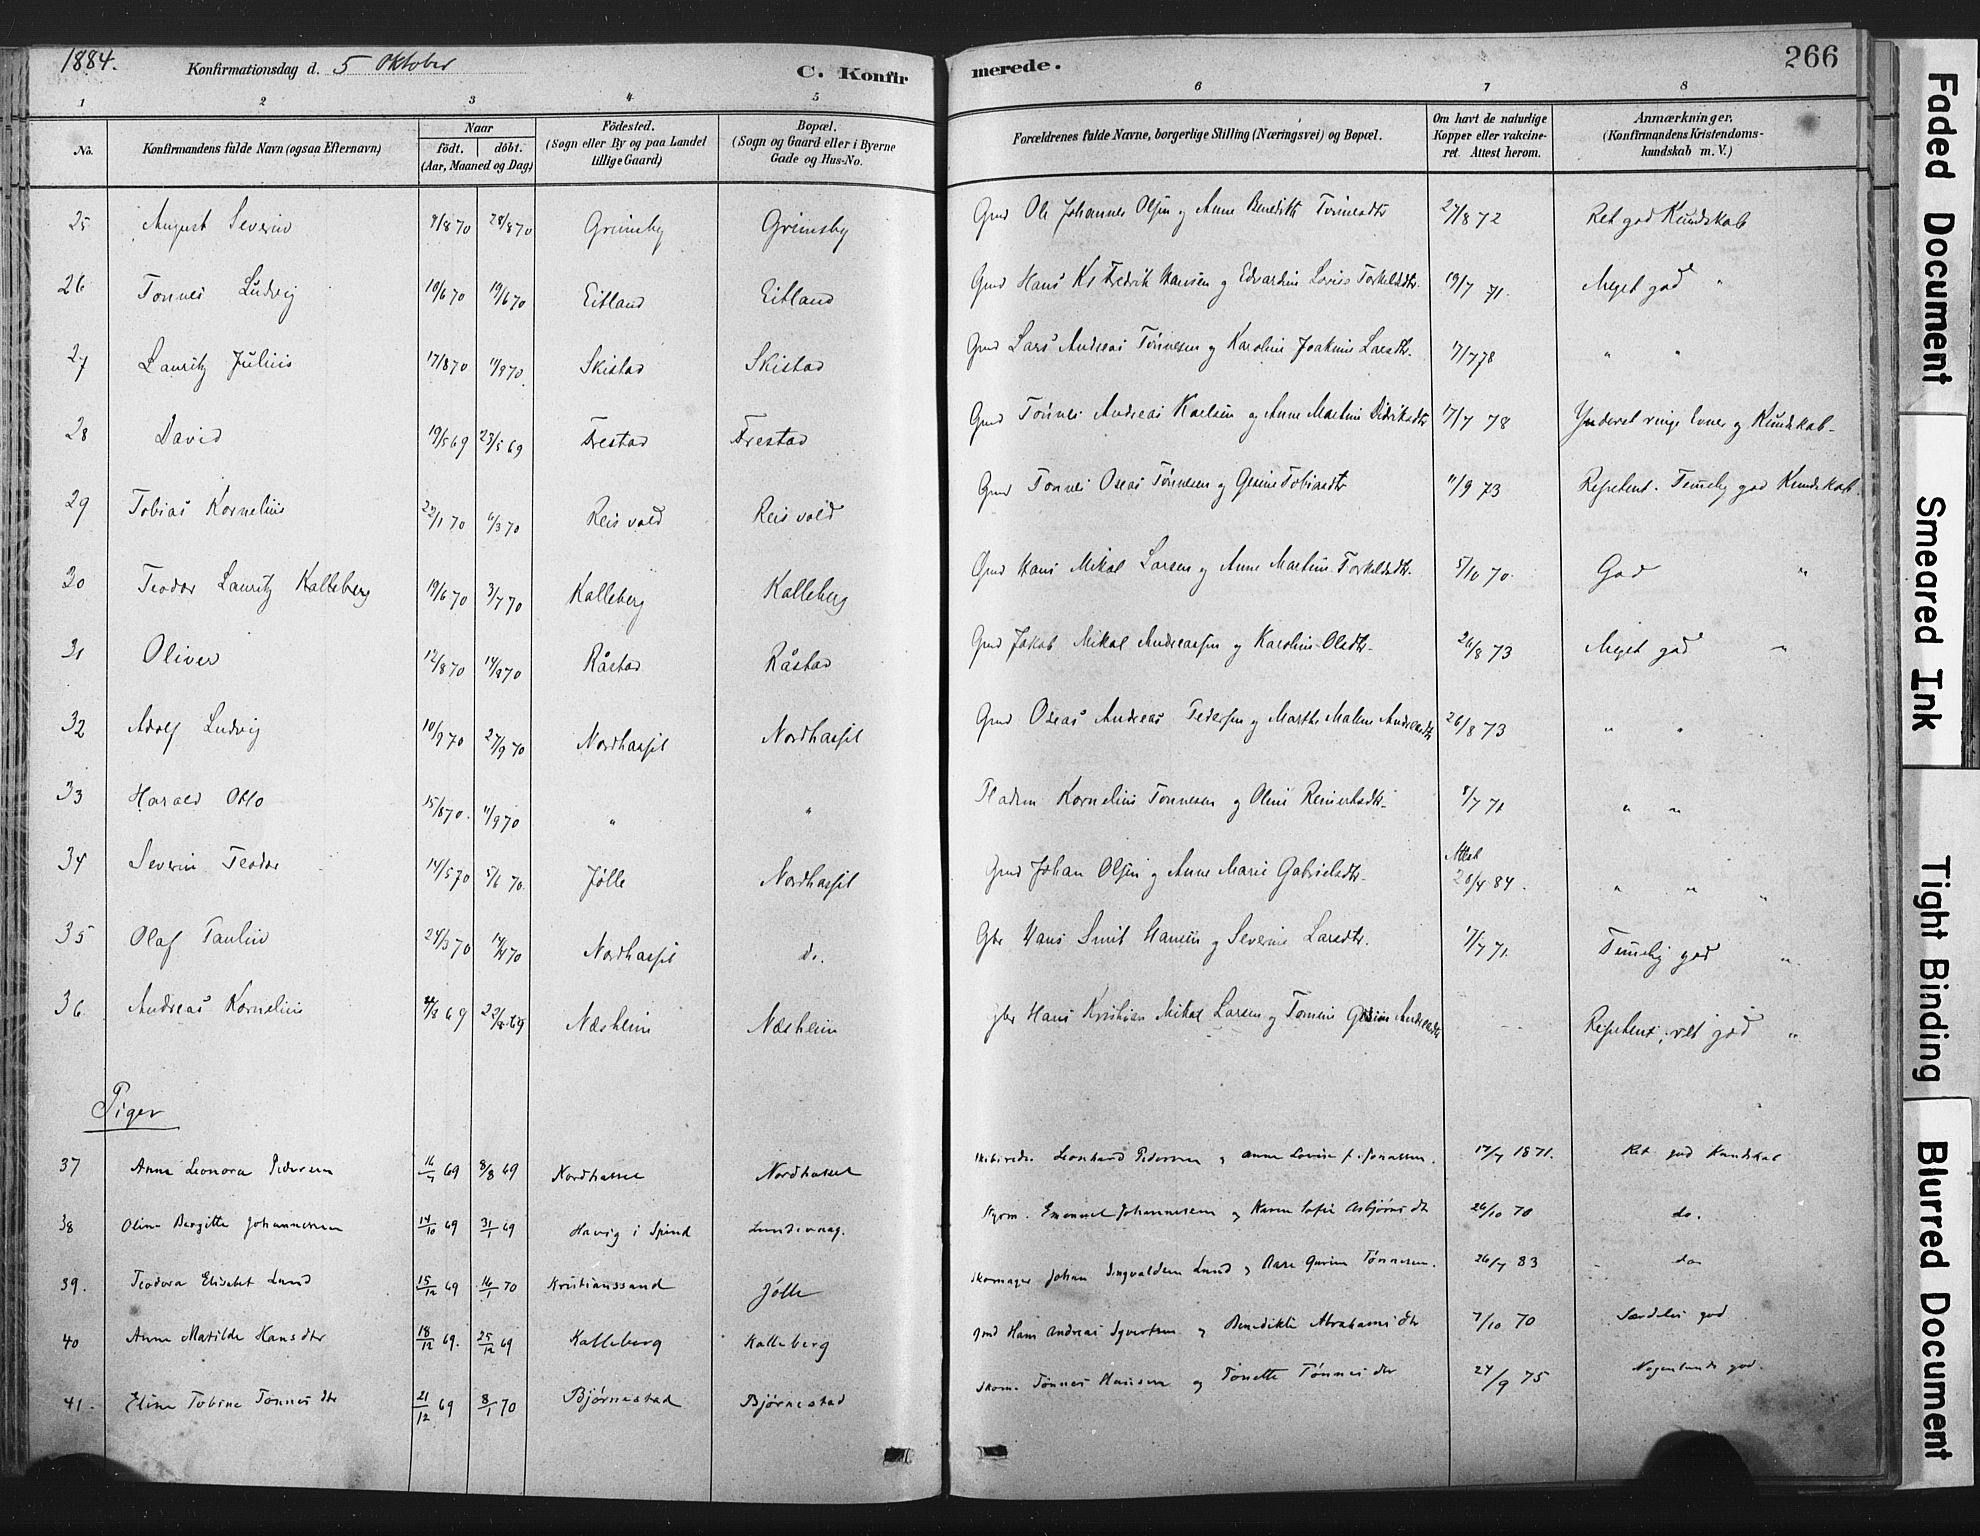 1884. Konfirmationsdag d. 5 Oktober C. Konfirmerede. 266
1 2 3 4 5 6 7 8
No. Konfirmandens fulde Navn (ogsaa Efternavn) Naar født. døbt. (Aar, Maaned og Dag) Födested. (Sogn eller By og paa Landet tillige Gaard) Bopæl. (Sogn og Gaard eller i Byerne Gade og Hus-No. Forældrenes fulde Navne, borgerlige Stilling (Næringsvei) og Bopæl. Om havt de naturlige Kopper eller vakcineret. Attest herom. Anmærkninger. (Konfirmandens Kristendomskundskab m. V.)
25 August Severin 9/8 70 28/8 70 Grimsby Grimsby Gmd Ole Johannes Olsen og Anne Benedikte 27/8 72 Ret god Kundskab
26 Tønnes Ludvig 10/6 70 19/6 70 Eitland Eitland Gmd Hans Kr Fredrik Hansen og Edvardine Lovise Torkelsdtr. 19/7 71. Meget god "
27 Lauritz Julius 17/8 70 11/9 70 Skistad Skistad Gmd Lars Andreas Tønnesen og Karoline Joakime Larsdtr. 17/7 78 " "
28 David 19/5 69 23/5 69 Frestad Frestad Gmd Tønnes Andreas Karlsen og Anne Martine Didriksdtr 17/7 78 Yderst ringe Evner og Kundskab-
29 Tobias Kornelius 22/1 70 6/3 70 Reisvold Reisvold Gmd Tønnes Oseas Tønnesen og Gesine Tobiasdtr 11/9 73 Repetent. Temelig god Kundskab.
30 Teodor Lauritz Kalleberg 19/6 70 3/7 70 Kalleberg Kalleberg Gmd Hans Mikal Larsen og Anne Martine Torkelsdtr. 5/10 70. God "
31 Oliver 12/8 70 14/8 70 Råstad Råstad Gmd Jakob Mikal Andreassen og Karoline Olsdtr. 26/8 73 Meget god "
32 Adolf Ludvig 10/9 70 27/9 70 Nordhassel Nordhassel Gmd Oseas Andreas Pedersen og Marthe Malene Andreasdtr 26/8 73 " "
33 Harald Otto 15/8 70. 11/9 70 " " Pladsm Kornelius Tønnesen og Oline Reinertsdtr. 8/7 71 " "
34 Severin Teodor 14/5 70 5/6 70. Jølle Nordhassel Gmd Johan Olsen og Anne Marie Gabrielsdtr. Attest 28/4 84. " " "
35 Olaf Paulin 24/3 70 14/4 70 Nordhassel do. Gbr Hans Smit Hansen og Severine Larsdtr. 17/7 71. Temelig god "
36. Andreas Kornelius 4/8 69 22/8 69 Næsheim Næsheim Gbr Hans Kristian Mikal Larsen og Tomine Gesine Andreasdtr - - Repetent, ret god "
Piger
37 Anna Leonora Pedersen 16/7 69 8/8 69 Nordhassel Nordhassel Leonhard Pedersen og Anne Lovise f. Jonassen. 17/7 1871. Ret god Kundskab
38 Oline Bergitte Johannessen 14/10 69 31/1 69 Havig i Spind Lundevaag. Emanuel Johannesen og Karen Sofie Asbjørnsdtr 26/10 70 do.
39. Teodora Elisabet Lund 15/12 69 16/1 70 Kristianssand Jølle Skomager Johan Ingvaldsen Lund og Aase Gurine Tønnesen. 26/7 83 do
40 Anne Matilde Hansdtr 18/12 69. 25/12 69 Kalleberg Kalleberg Gmd Hans Andreas Syvertsen og Benedikte Abrahamsdtr 7/10 70 Særdeles god
41. Eline Tobine Tønnesdtr 21/12 69 8/1 70 Bjørnestad Bjørnestad Skom. Tønnes Hansen og Tonette Tønnesdtr 24/9 75 Nogenlunde god.
Faded Document
Smeared Ink
Tight Binding
Blurred Document